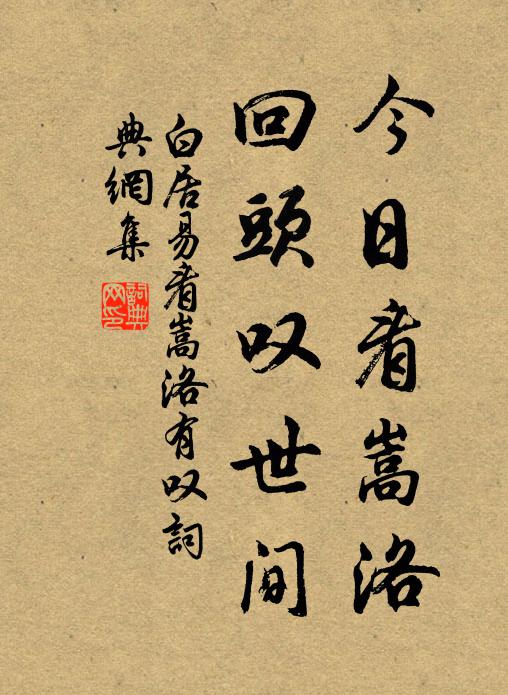 今日看嵩洛
回頭叹世间
白居易看嵩洛有叹詞
典網集
詞典
网印